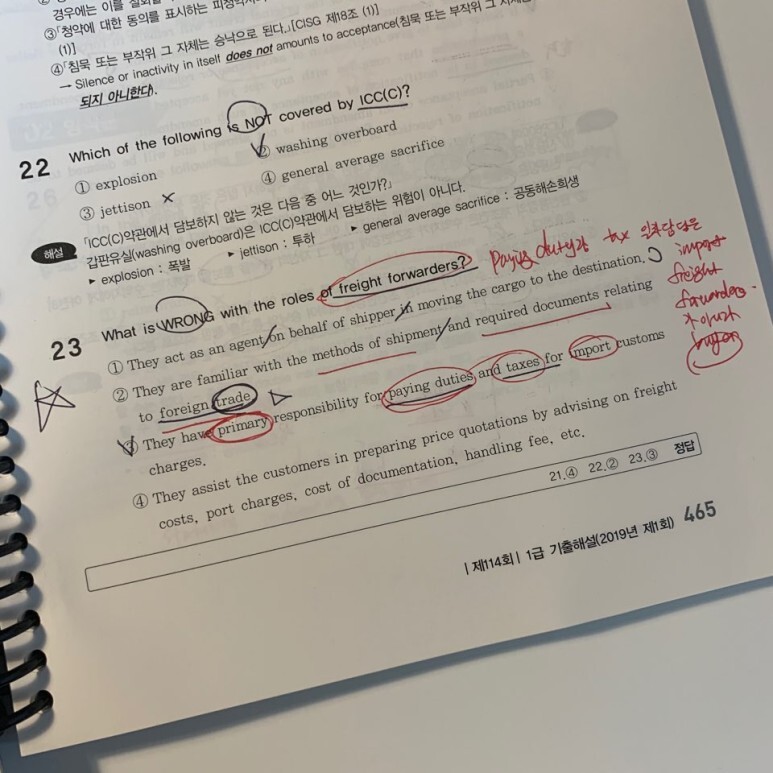 경우에는 이를
③「청약에 대한 동의를 표시하는
(1)]
④「침묵 또는 부작위 그 자체는 승낙으로 된다.」[CISG 제18조 (1)]
→ Silence or inactivity in itself does not amounts to acceptance(침묵 또는 부작위 그
되지 아니한다).
22 Which of the following is NOT covered by ICC(C)?
① explosion ② washing overboard
③ jettison ④ general average sacrifice
해설 「ICC(C)약관에서 담보하지 않는 것은 다음 중 어느 것인가?」
갑판유실(washing overboard)은 ICC(C)약관에서 담보하는 위험이 아니다.
▶ explosion : 폭발 ▶ jettison : 투하 ▶ general average sacrifice : 공동해손희생
23 What is WRONG with the roles of freight forwarders?
paying duty과 tax 담당은
import
freight
forwarders
아니라
buyer
① They act as an agent on behalf of shipper in moving the cargo to the destination.
② They are familiar with the methods of shipment and required documents relating
to foreign trade
③ They have primary responsibility for paying duties and taxes for import customs
charges.
④ They assist the customers in preparing price quotations by advising on freight
costs, port charges, cost of documentation, handling fee, etc.
21.④ 22.② 23.③ 정답
| 제114회 | 1급 기출해설(2019년 제1회) 465